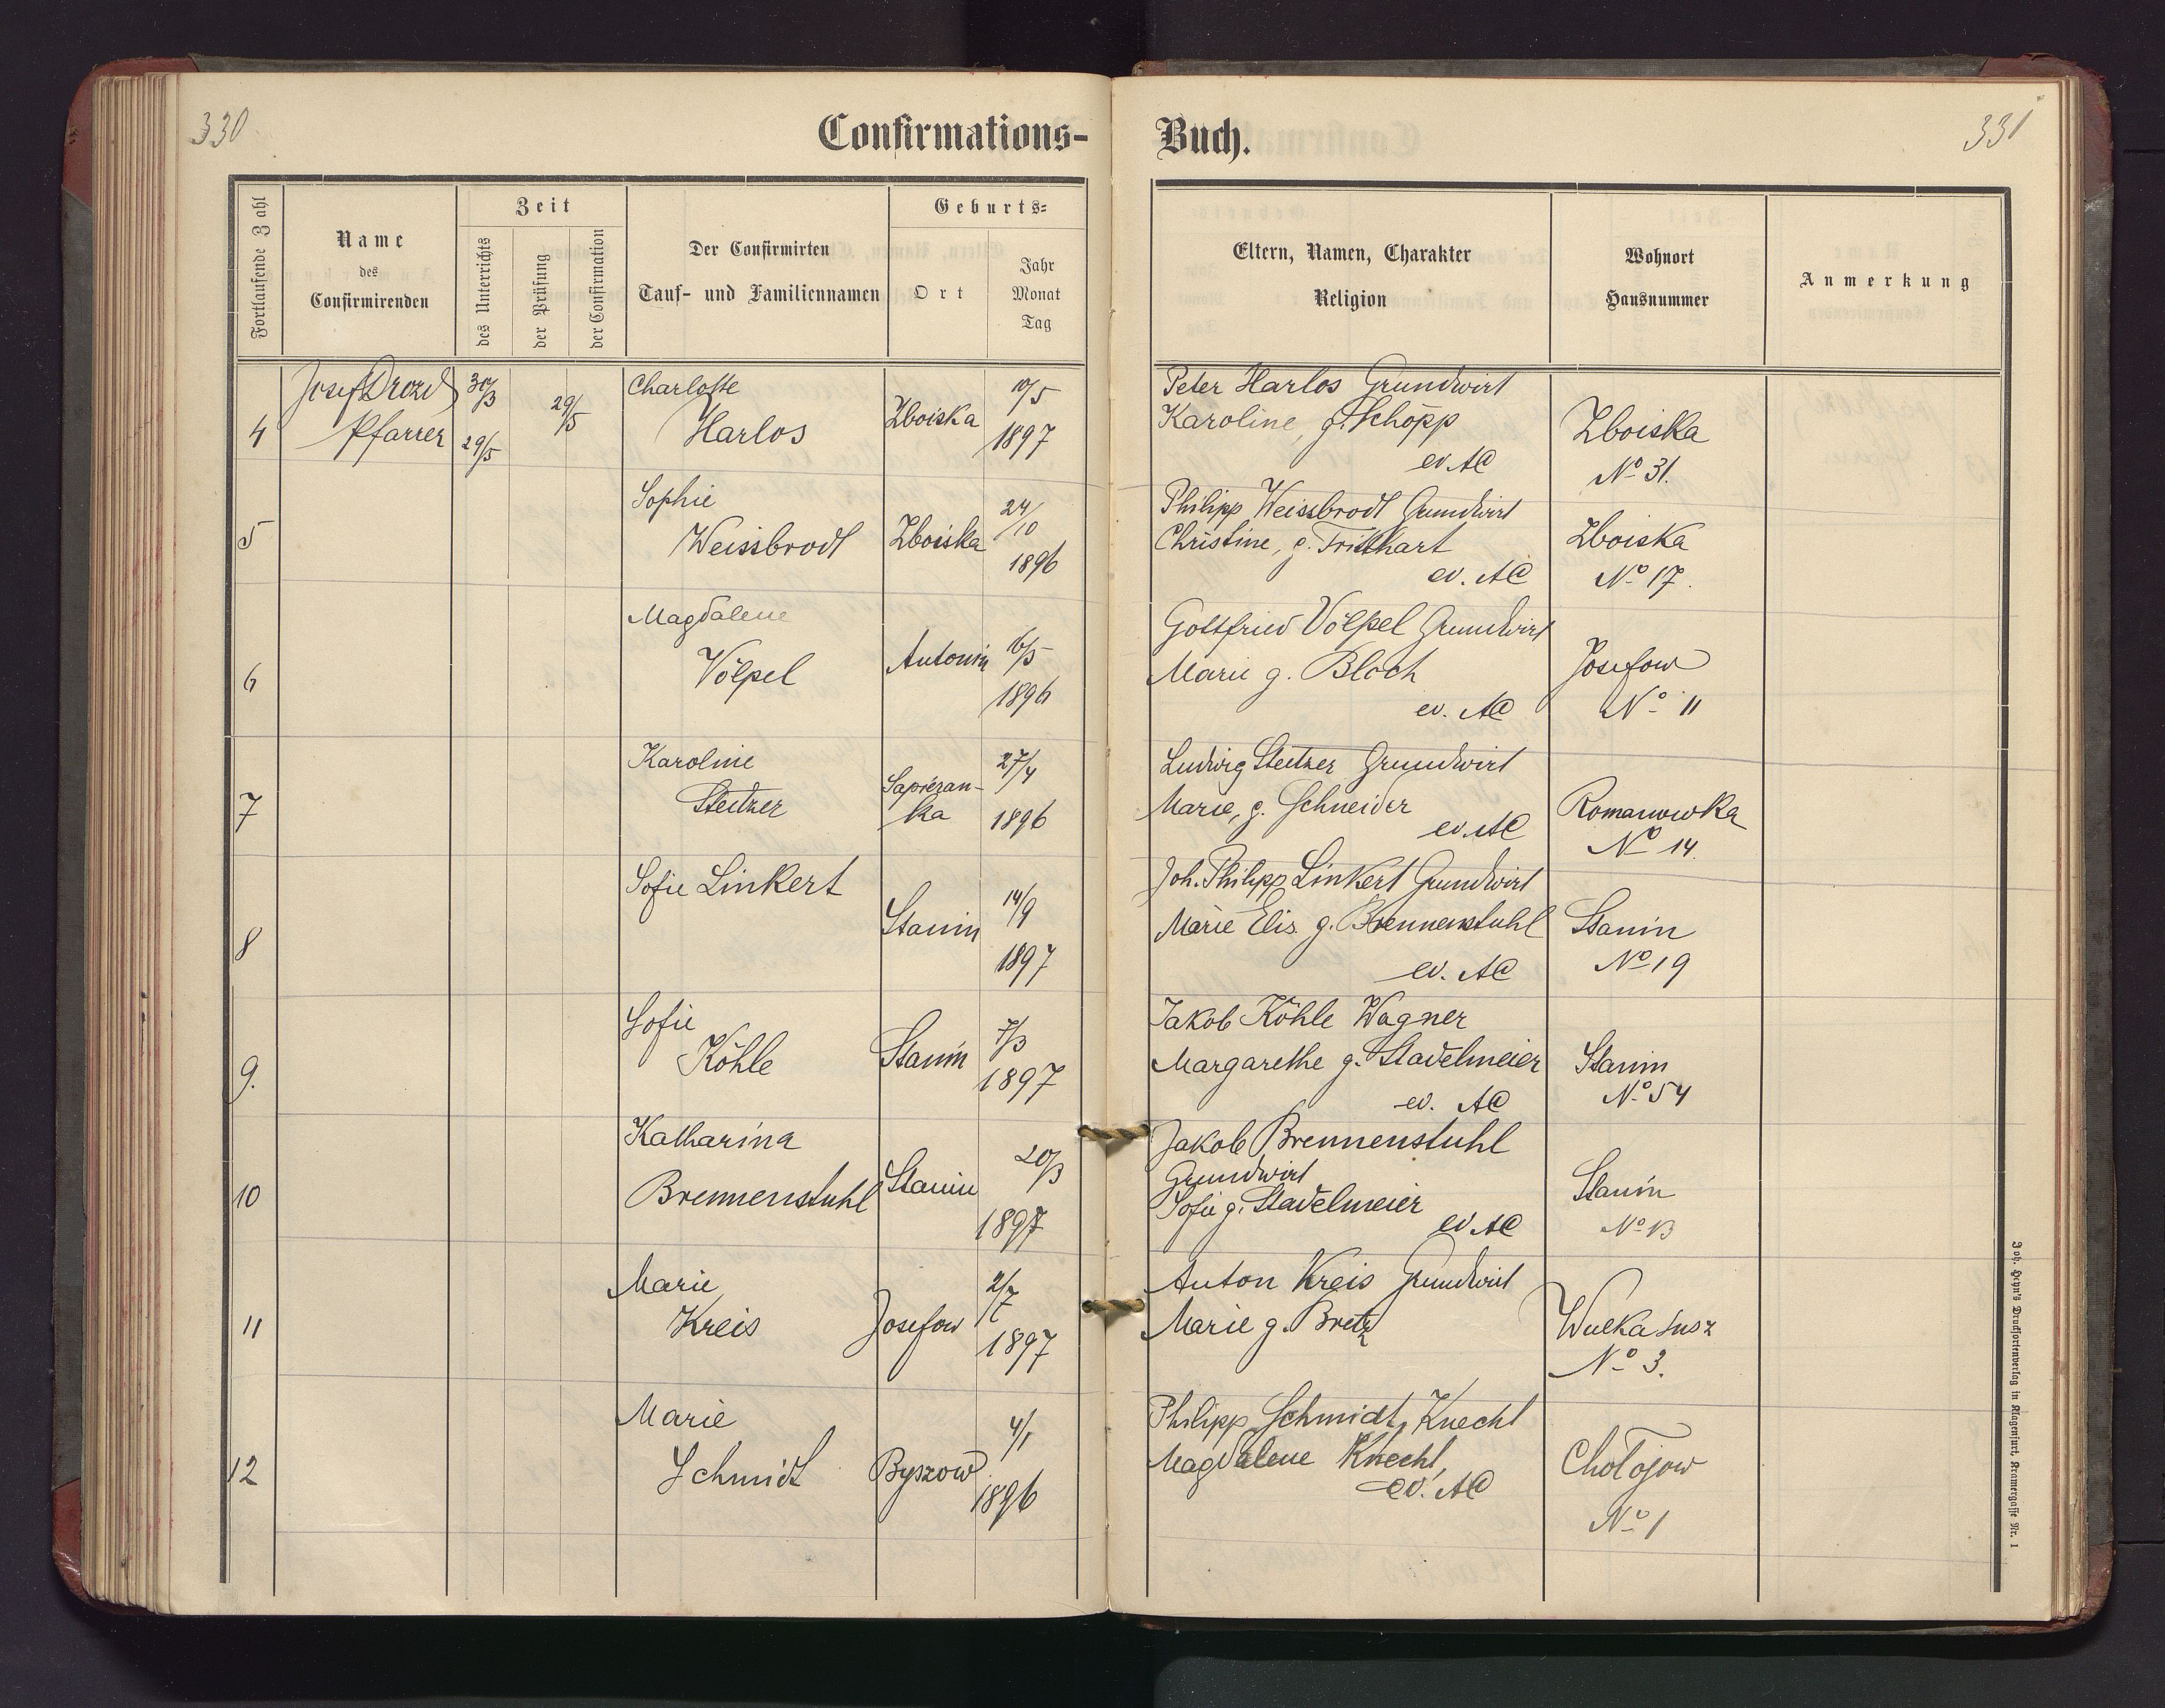 330
Confirmations-
Fortlaufende Zahl
Name
des
Confirmirenden
Zeit
des Unterrichts
der Prüfung
der Confirmation
Der Confirmirten
Tauf- und Familiennamen
Geburts-
Ort
Jahr
Monat
Tag
4
Josef Drozd
Pfarrer
30/3
29/5
29/5
Charlotte
Harlos
Zboiska
10/5
1897
5
Sophie
Weissbrodt
Zboiska
24/10
1896
6
Magdalene
Völpel
Antonin
16/5
1896
7
Karoline
Steitzer
Sapiezan-
ka
27/4
1896
8
Sofie Linkert
Stanin
14/9
1897
9.
Sofie
Köhle
Stanin
7/3
1897
10
Katharina
Brennenstuhl
Stanin
20/3
1897
11
Marie
Kreis
Josefow
2/7
1897
12
Marie
Schmidt
Byszow
4/1
1896
Buch.
331
Eltern, Namen, Charakter
Religion
Wohnort
Hausnummer
Anmerkung
Peter Harlos Grundwirt
Karoline, g. Schöpp
ev. AC
Zboiska
No 31.
Philipp Weissbrodt Grundwirt
Christine, g.
ev. AC
Zboiska
No 17.
Gottfried Völpel Grundwirt
Marie g. Bloch
ev. AC
Josefow
No 11
Ludwig Steitzer Grundwirt
Marie, g. Schneider
ev. AC
Romanowka
No 14.
Joh. Philipp Linkert Grundwirt
Marie Elis. g. Brennenstuhl
ev. AC
Stanin
No 19
Jakob Köhle Wagner
Margarethe g. Stadelmeier
ev. AC
Stanin
No 54
Jakob Brennenstuhl
Grundwirt
Sofie g. Stadelmeier
ev AC
Stanin
No 13
Anton Kreis Grundwirt
Marie g. Bretz
Wulka susz
No 3.
Philipp Schmidt, Knecht
Magdalene Knecht,
ev. AC
Chołojow
No 1
Joh. Heyn's Drucksortenverlag in Klagenfurt, Kramergasse Nr. 1